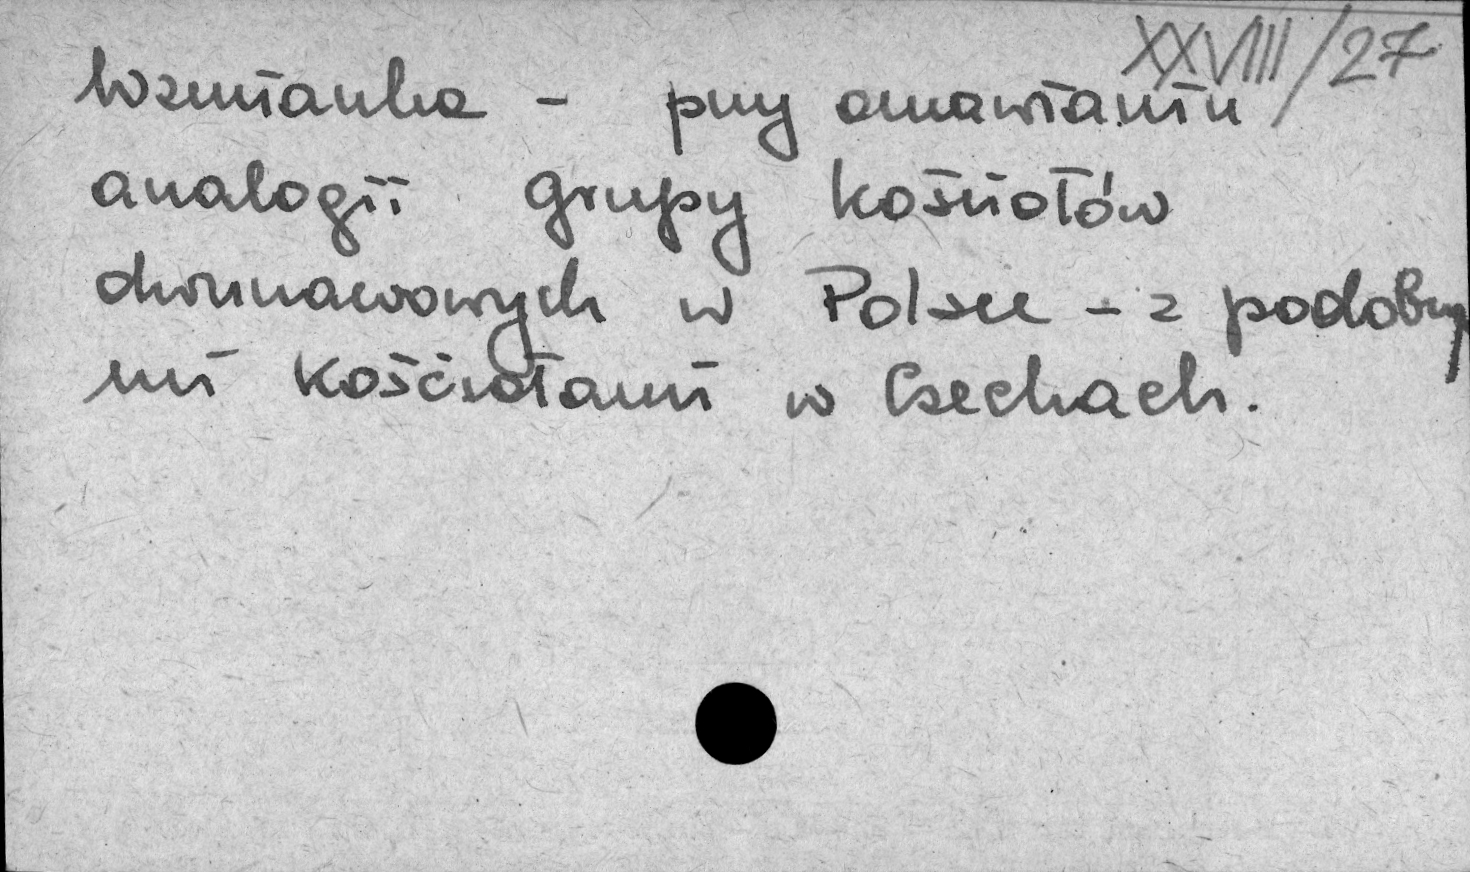 XXVIII/27
Wzmianka - przy omawianiu
analogii grupy kościołów
dwunawowych w Polsce - z podobny
mi kościołami w Czechach.